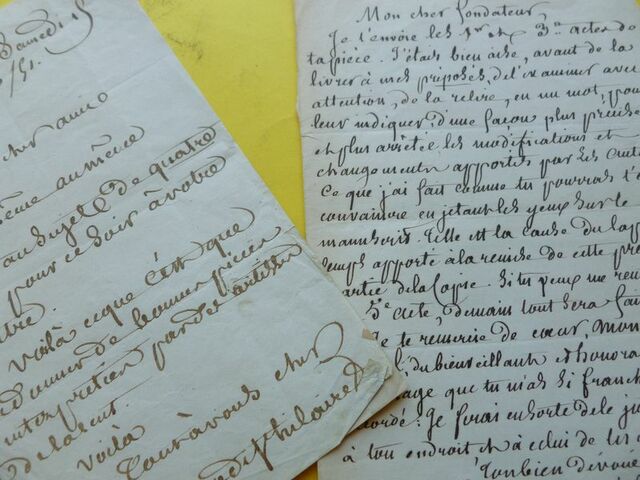 Samedi
/51.
cher ami
même au même
au sujet de quatre
pour ce soir à votre
tre.
Voilà ce que c'est que
donner de bonnes pièces
interprétées par des artistes
de talent.
Voilà
Tout à vous cher
Mon cher fondateur
Je t'envoie les 1er et 3e actes de
ta pièce. J'étais bien aise, avant de la
livrer à mes préposés, de l'examiner avec
attention, de la relire, en un mot, pour
leur indiquer d'une façon plus précise
et plus arrêtée les modifications et
changements apportés par les
Ce que j'ai fait comme tu pourras t'en
convaincre en jetant les yeux sur le
manuscrit. Telle est la cause du
temps apporté à la remise de cette
partie de la Copie. Si tu peux me
5e acte, demain tout sera fait
Je te remercie de cœur, mon
du bienveillant et honora
age que tu m'as si franch
cordé. Je ferai en sorte de
à ton endroit et à celui de
Ton bien dévoué